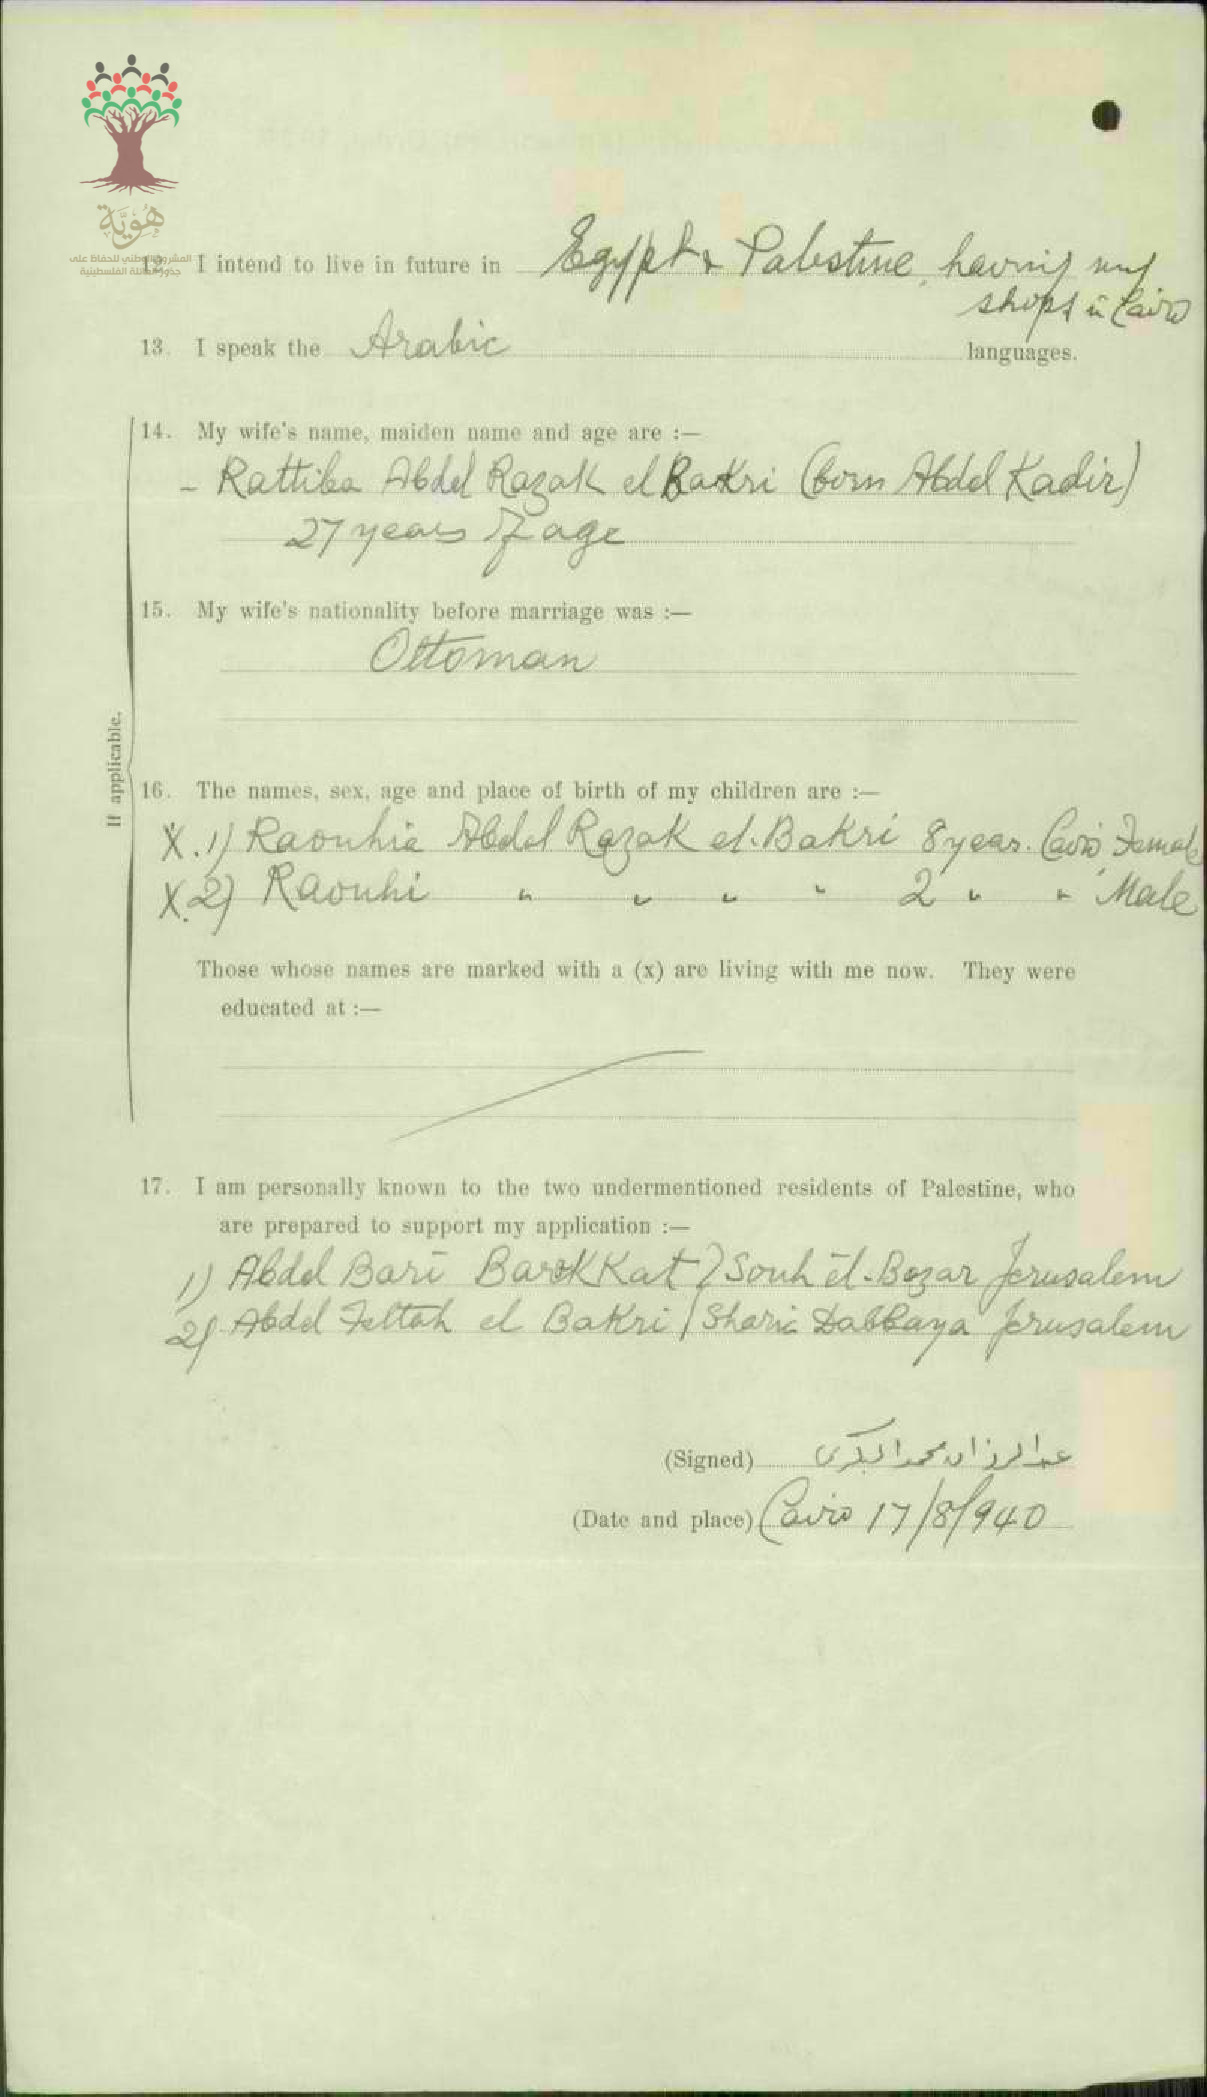 هوية
المشروع الوطني للحفاظ على
جذور العائلة الفلسطينية
I intend to live in future in Egypt & Palestine, having my
shops in Cairo
13. I speak the Arabic languages.
14. My wife's name, maiden name and age are :—
- Rattiba Abdel Razak el Bakri (born Abdel Kadir)
27 years of age
15. My wife's nationality before marriage was :—
Ottoman
If applicable.
16. The names, sex, age and place of birth of my children are :—
X. 1) Raouhia Abdel Razak el. Bakri 8 year. Cairo Female
X. 2) Raouhi " " " " 2 " " Male
Those whose names are marked with a (x) are living with me now. They were
educated at :—
17. I am personally known to the two undermentioned residents of Palestine, who
are prepared to support my application :—
1) Abdel Bari Barakkat / Souk el. Bazar Jerusalem
2) Abdel Fettah el Bakri / Sharia Dabbaya Jerusalem
(Signed) عبد الرزاق محمد البكري
(Date and place) Cairo 17/8/940